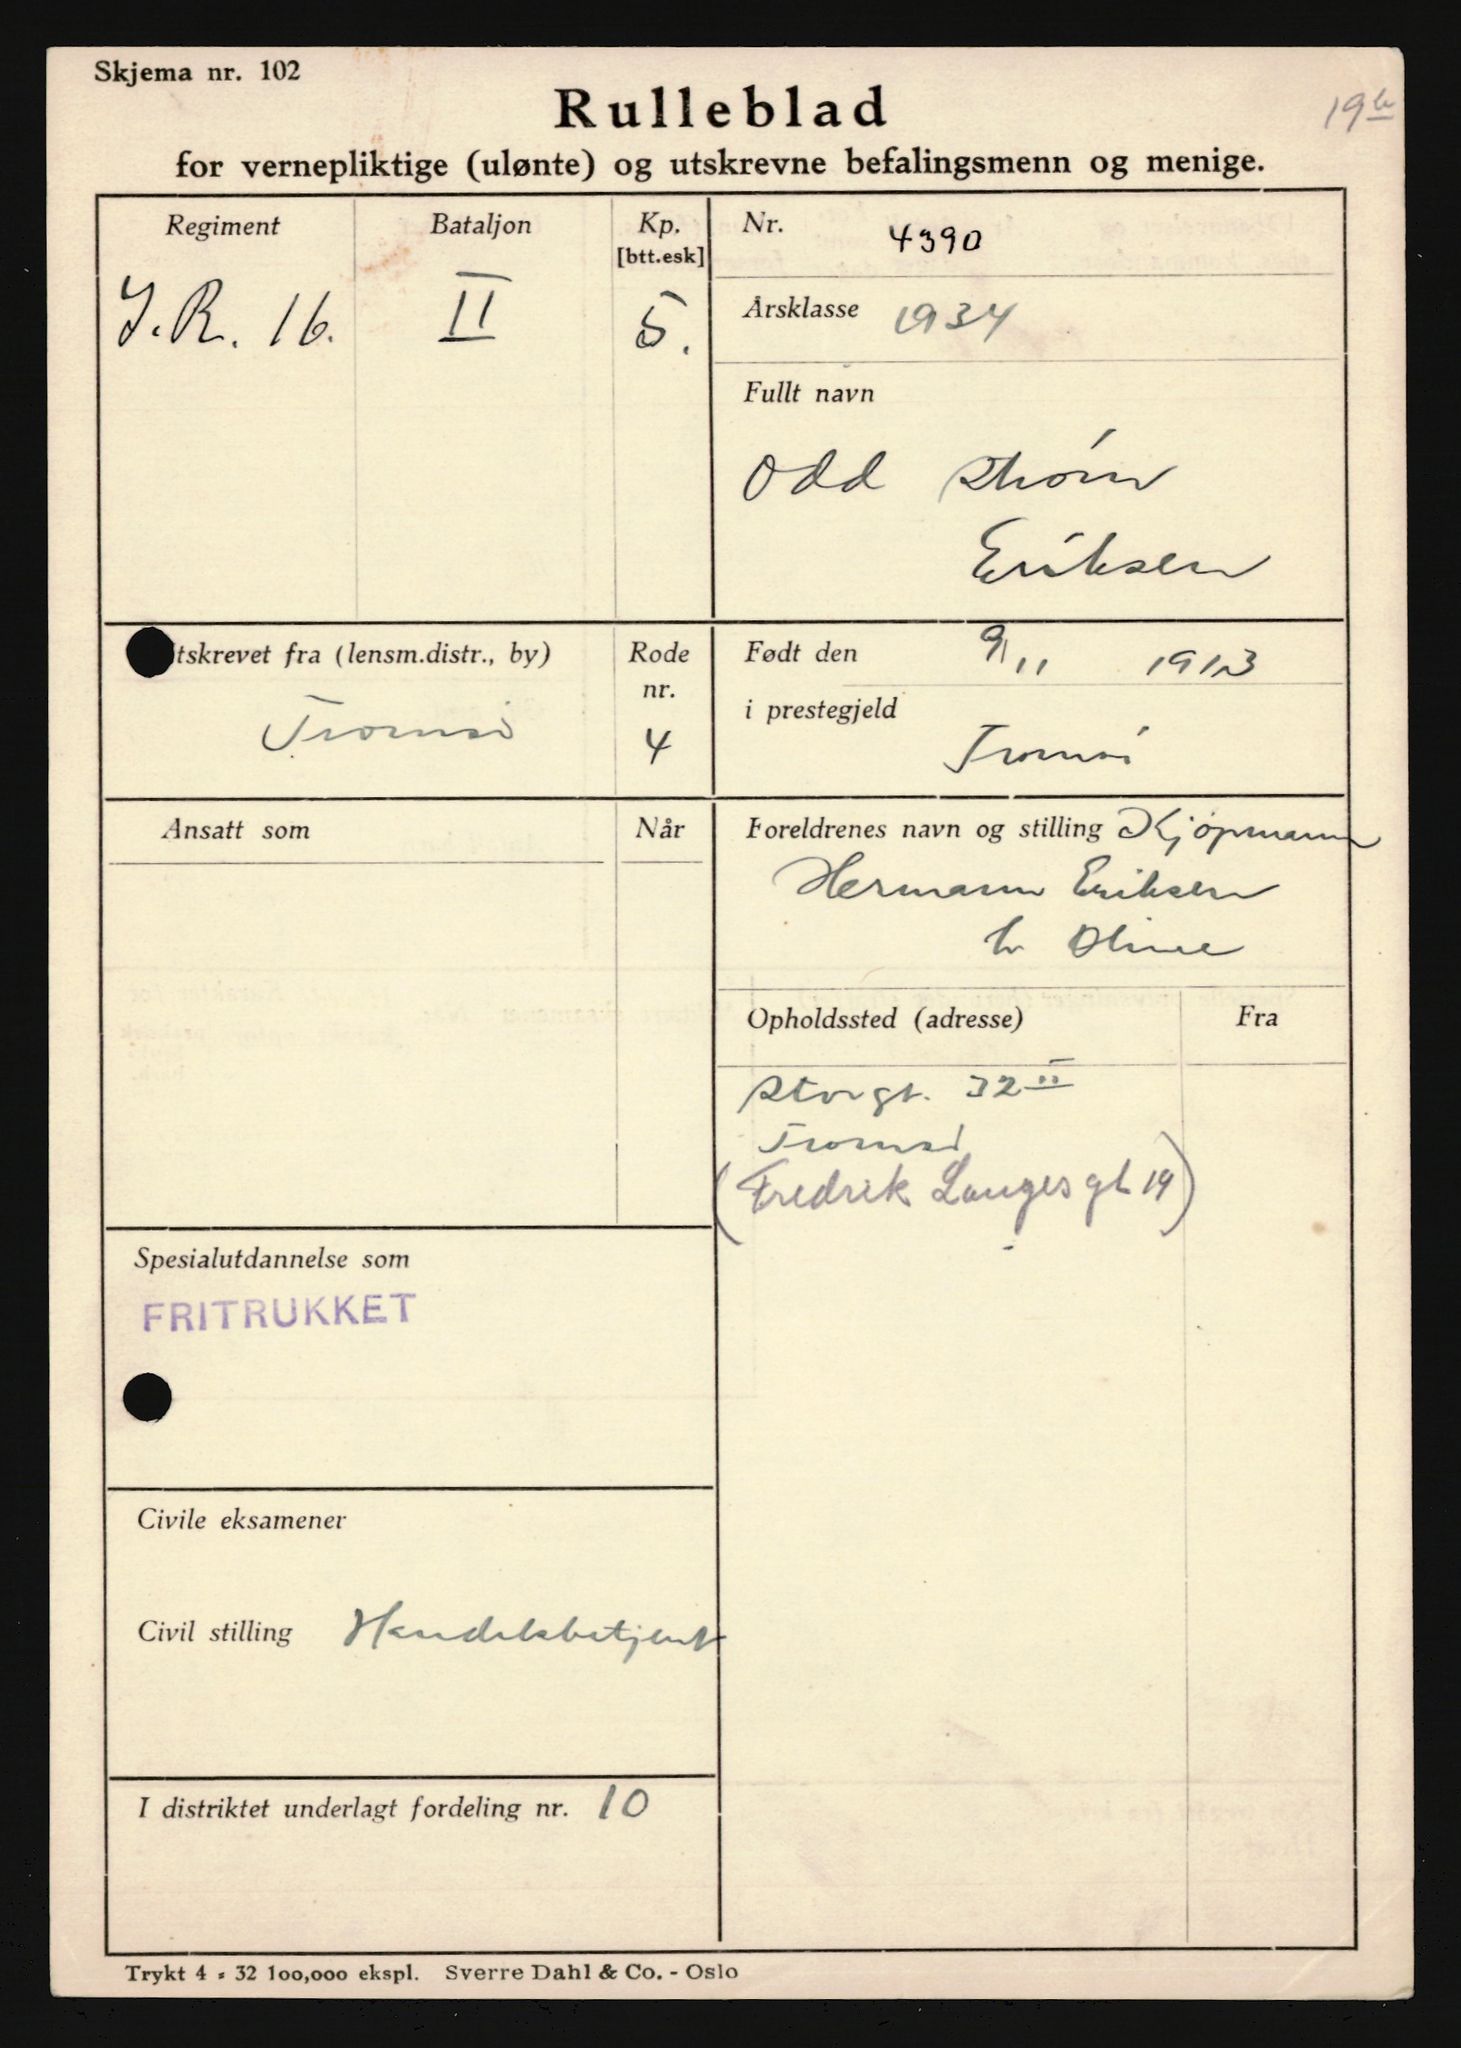 Skjema nr. 102
Rulleblad
19
for vernepliktige (ulønte) og utskrevne befalingsmenn og menige.
Regiment
I.R. 16.
Bataljon
II
Kp.
[btt.esk]
5.
Nr. 4390
Årsklasse 1934
Fullt navn
Odd Strøm
Eriksen
tskrevet fra (lensm.distr., by)
Tromsø
Rode
nr.
4
Født den 9/11 1913
i prestegjeld
Tromsø
Ansatt som
Når
Foreldrenes navn og stilling Kjøpmann
Hermann Eriksen
h Oline
Opholdssted (adresse)
Fra
Storgt. 32 II
Tromsø
(Fredrik Langes gt 19)
Spesialutdannelse som
FRITRUKKET
Civile eksamener
Civil stilling Handelsbetjent
I distriktet underlagt fordeling nr. 10
Trykt 4 - 32 100,000 ekspl. Sverre Dahl & Co. - Oslo